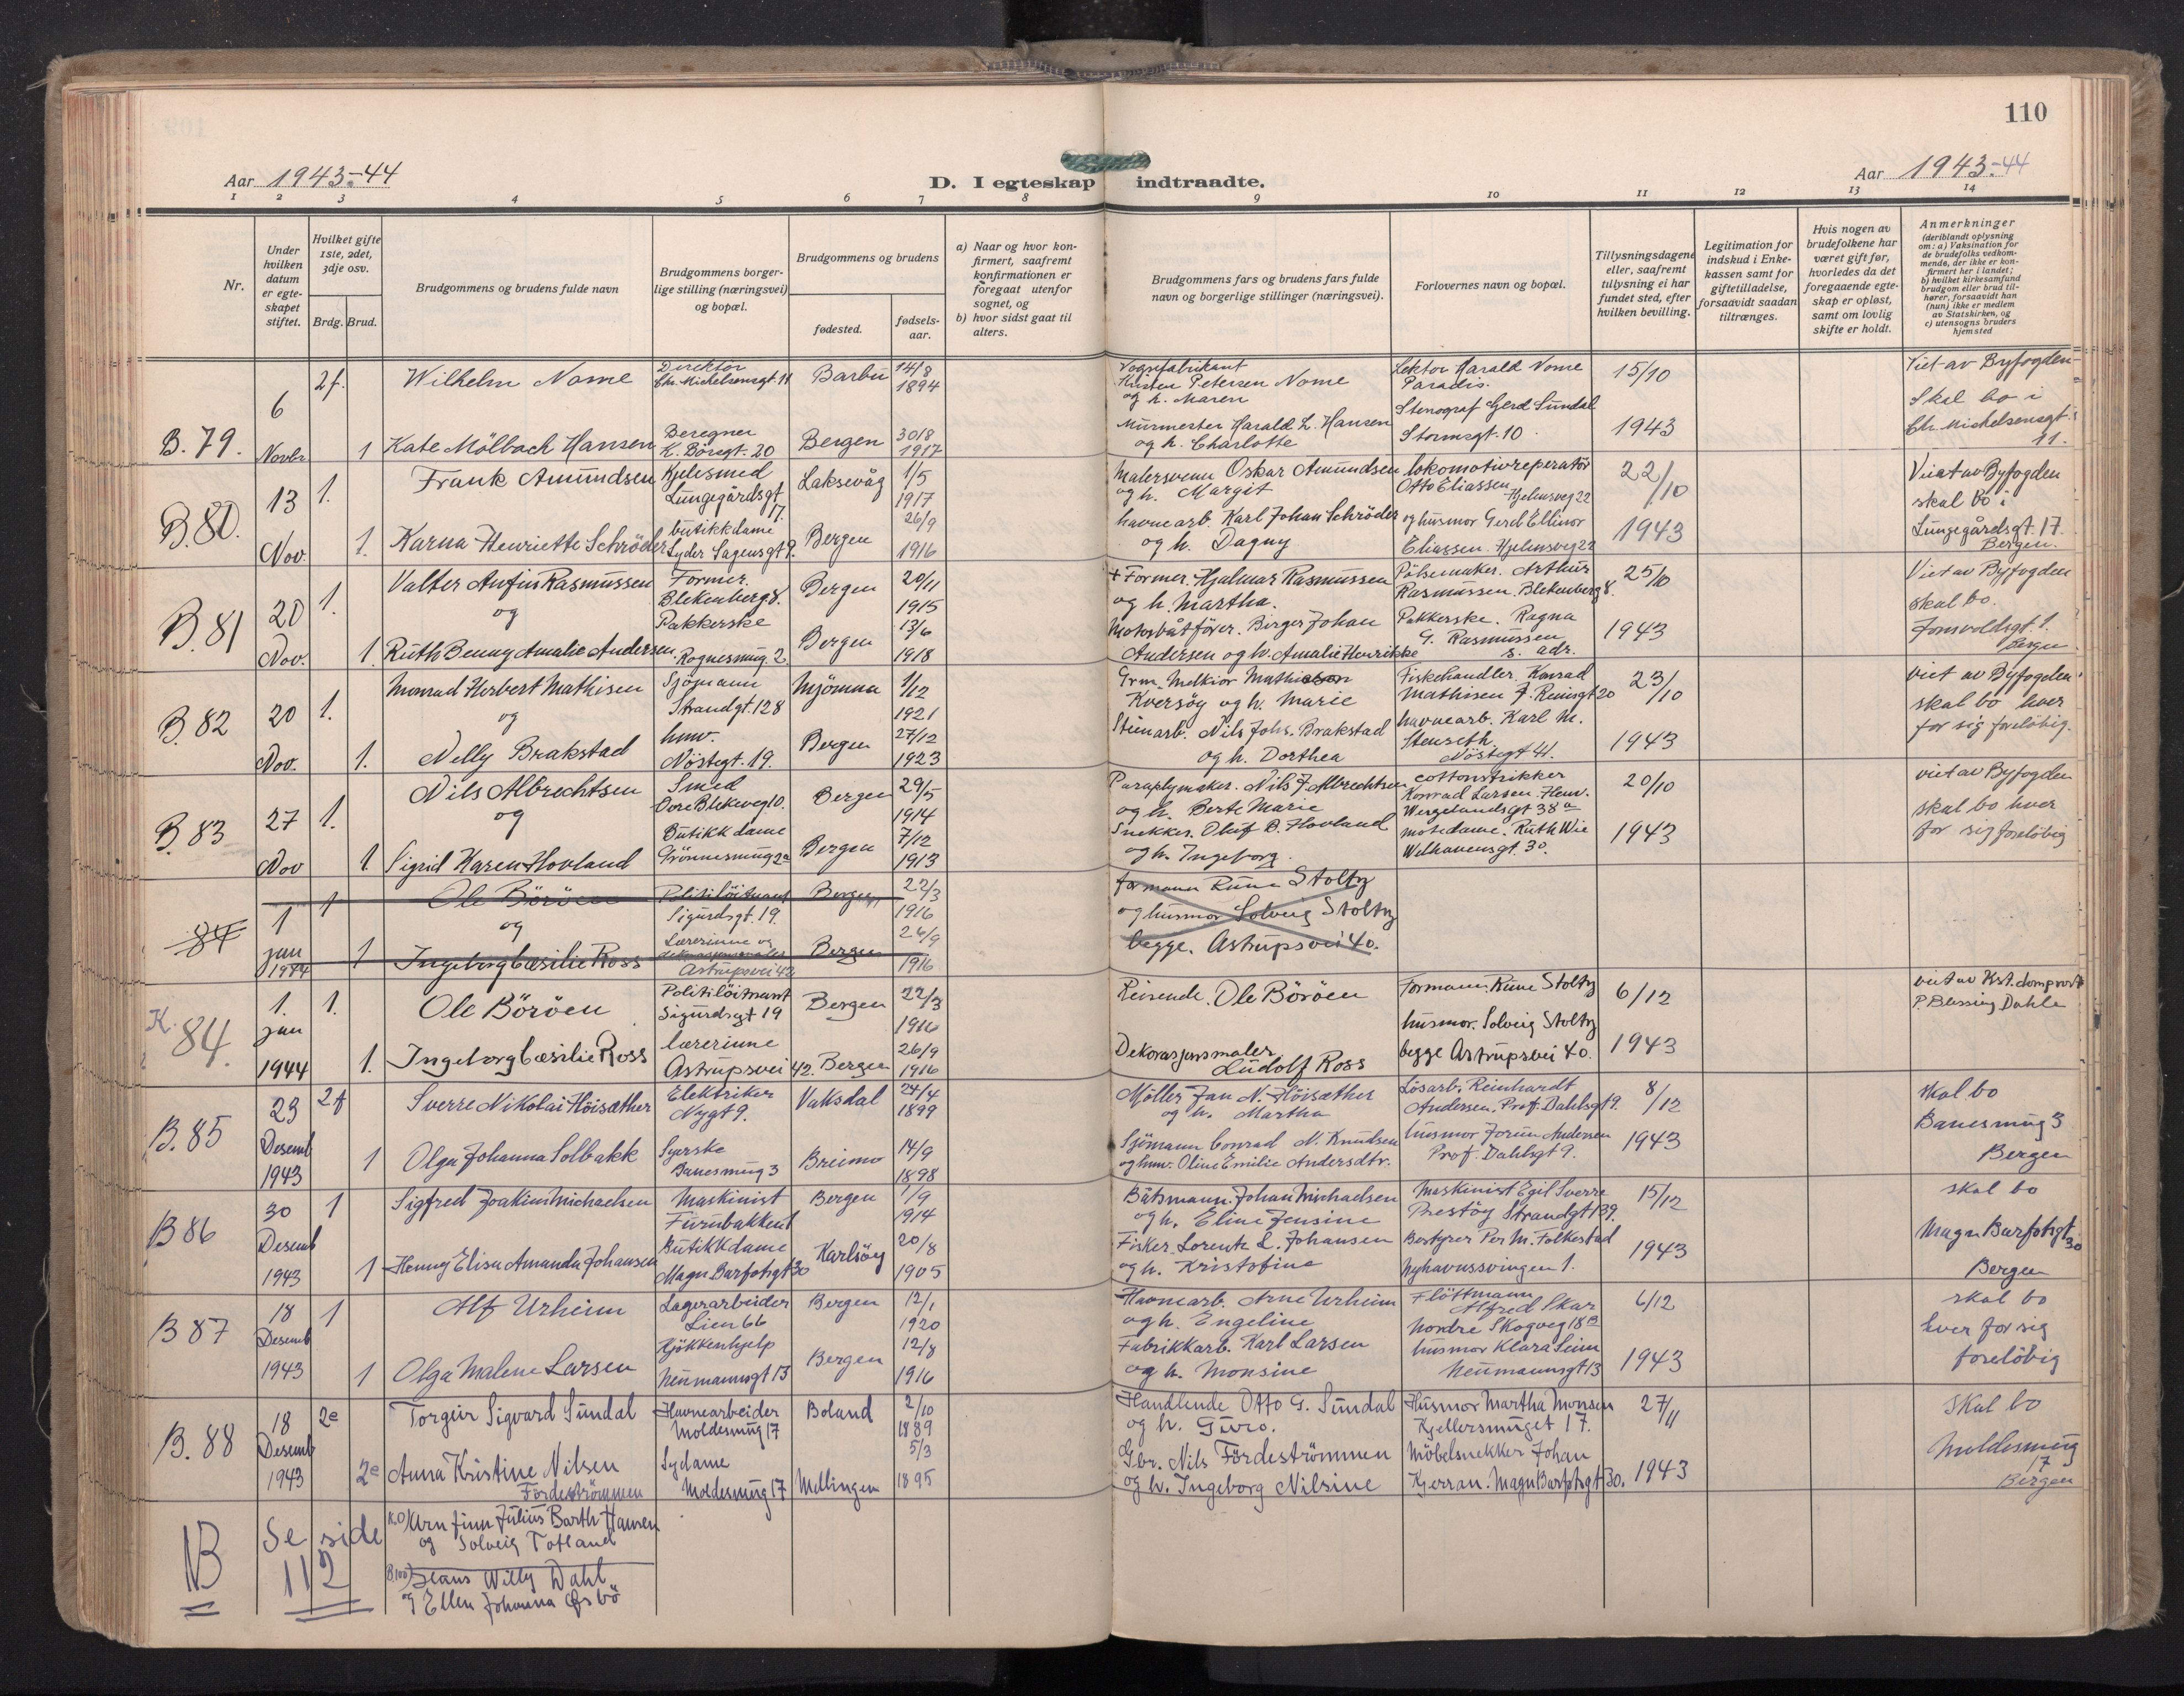 110
Aar 1943-44
D. I egteskap indtraadte.
Aar 1943-44
1 2 3 4 5 6 7 8 9 10 11 12 13 14
Nr.
Under hvilken datum er egteskapet stiftet.
Hvilket gifte 1ste, 2det, 3dje osv.
Brdg. Brud.
Brudgommens og brudens fulde navn
Brudgommens borgerlige stilling (næringsvei) og bopæl.
Brudgommens og brudens
fødested.
fødselsaar.
a) Naar og hvor konfirmert, saafremt konfirmationen er foregaat utenfor sognet, og
b) hvor sidst gaat til alters.
Brudgommens fars og brudens fars fulde navn og borgerlige stillinger (næringsvei).
Forlovernes navn og bopæl.
Tillysningsdagene eller, saafremt tillysning ei har fundet sted, efter hvilken bevilling.
Legitimation for indskud i Enkekassen samt for giftetilladelse, forsaavidt saadan tiltrænges.
Hvis nogen av brudefolkene har været gift før, hvorledes da det foregaaende egteskap er opløst, samt om lovlig skifte er holdt.
Anmerkninger (deriblandt oplysning om: a) Vaksination for de brudefolks vedkommende, der ikke er konfirmert her i landet; b) hvilket kirkesamfund brudgom eller brud tilhører, forsaavidt han (hun) ikke er medlem av Statskirken, og c) utensogns bruders hjemsted
B. 79. 6 Novbr
2f. Wilhelm Nome Direktør Chr. Michelsensgt. 11 Barbu 14/8 1894
Kristen Petersen Nome og h. Maren
Lektor Harald Nome Paradis.
15/10
Viet av Byfogden
1 Kate Mölbach Hansen Beregner K. Börsgt. 20 Bergen 30/8 1917
Murmester Harald L. Hansen og h. Charlotte
Stenograf Gerd Sundal Stormsgt. 10.
1943
Skal bo i Chr. Michelsensgt. 11.
B. 80. 13 Nov.
1. Frank Amundsen Kjelesmed Lungegårdsgt 17. Laksevåg 1/5 1917
Malersvenn Oskar Amundsen og h. Margit
lokomotivreperatör Otto Eliassen Hjelmsveg 22
22/10
Viet av Byfogden skal bo i
1. Karna Henriette Schröder butikkdame Lyder Sagensgt 9. Bergen 26/9 1916
havnearb. Karl Johan Schröder og h. Dagny
og husmor Gerd Ellinor Eliassen. Hjelmsveg 22
1943
Lungegårdsgt. 17. Bergen.
B. 81 20 Nov.
1. Valter Anfin Rasmussen Former. Blekenberg 8. Bergen 20/11 1915
+ Former. Hjalmar Rasmussen og h. Martha.
Pölsemaker. Arthur Rasmussen. Blekenberg 8.
25/10
Viet av Byfogden skal bo.
og
1. Ruth Benny Amalie Andersen Pakkerske Rognesmug. 2 Bergen 13/6 1918
Motorbåtförer. Birger Johan Andersen og h. Amalie Henrikke
Pakkerske. Ragna G. Rasmussen s. adr.
1943
Bergen
B. 82 20 Nov.
1. Monrad Herbert Mathisen Sjömann Strandgt. 128 Mjömna 1/12 1921
Grm. Melkior Mathiesen Kversöy og h. Marie
Fiskehandler. Konrad Mathisen
23/10
viet av Byfogden skal bo hver for sig foreløbig.
og
1. Nelly Brakstad hmv. Nöstegt. 19. Bergen 27/12 1923
Steinarb. Nils Johs. Brakstad og h. Dorthea
havnearb. Karl M. Stenseth Nöstegt 41.
1943
B. 83 27 Nov
1. Nils Albrechtsen Smed Övre Blekeveg 10. Bergen 29/5 1914
Paraplymaker. Nils J. Albrechtsen og h. Berte Marie
cottonstrikker Konrad Larsen. Henr. Wergelandsgt 38a
20/10
viet av Byfogden skal bo hver for sig foreløbig
og
1. Sigrid Karen Hovland Butikkdame Grönnesmug 2a Bergen 7/12 1913
Snekker. Oluf B. Hovland og h. Ingeborg.
motedame. Ruth Wie Welhavensgt. 30.
1943
84 1 jan 1944
1 Ole Böröen Politilöitnant Sigurdsgt. 19. Bergen 22/3 1916
formann Rune Stoltz og husmor Solveig Stoltz begge. Astrupsvei 40.
og
1 Ingeborg Cæsilie Ross Lærerinne og dekorasjonsmaler Astrupsvei 42 Bergen 26/9 1916
K. 84. 1. jan 1944
1. Ole Böröen Politilöitnant Sigurdsgt 19 Bergen 22/3 1916
Reisende. Ole Böröen
Formann. Rune Stoltz
6/12
viet av Kst. domprost P. Blessing Dahle
1. Ingeborg Cæsilie Ross lærerinne Astrupsvei 42. Bergen 26/9 1916
Dekorasjonsmaler Ludolf Ross
husmor. Solveig Stoltz begge Astrupsvei 40.
1943
B. 85 23 Desemb 1943
2f Sverre Nikolai Höisæther Elektriker Nygt 9. Vaksdal 24/4 1899
Möller Jan N. Höisæther og h. Martha
Lösarb. Reinhardt Andersen. Prof. Dahlsgt 9.
8/12
skal bo Banesmug 3 Bergen
1 Olga Johanna Solbakk Syerske Banesmug 3 Breimo 14/9 1898
Sjömann Conrad N. Knudsen og hmv. Oline Emilie Andersdtr.
husmor Jorun Andersen Prof. Dahlsgt 9.
1943
B 86 30 Desemb 1943
1 Sigfred Joakim Michaelsen Maskinist Furubakken 1 Bergen 1/9 1914
Båtsmann. Johan Michaelsen og h. Eline Jensine
Maskinist Egil Sverre Prestöy Strandgt 139.
15/12
skal bo Magn Barfotsgt 30 Bergen
1 Henny Elisa Amanda Johansen Butikkdame Magn. Barfotsgt 30 Karlsöy 20/8 1905
Fisker Lorentz L. Johansen og h. Kristofine
Bestyrer Per M. Folkestad Nyhavnssvingen 1.
1943
B 87 18 Desemb 1943
1 Alf Urheim Lagerarbeider Lien 66 Bergen 12/1 1920
Havnearb. Arne Urheim og h. Engeline
Flöttmann Alfred Skar Nordre Skogveg 18B
6/12
skal bo hver for sig foreløbig
1 Olga Malene Larsen Kjökkenhjelp Neumannsgt 13 Bergen 12/8 1916
Fabrikkarb. Karl Larsen og h. Monsine
husmor Klara Seim Neumannsgt 13
1943
B. 88 18 Desemb 1943
2e Torgeir Sigvard Sundal Havnearbeider Moldesmug 17 Boland 2/10 1889
Handlende Otto G. Sundal og h. Guro.
Husmor Martha Monsen Kjellersmuget 17.
27/11
Skal bo Moldesmug 17 Bergen
2e Anna Kristine Nilsen Fördeströmmen Sydame Moldesmug 17 Mellingen 5/3 1895
Gbr. Nils Fördeströmmen og h. Ingeborg Nilsine
Möbelsnekker Johan Kjerran. Magn Barfotsgt 30.
1943
NB Se side 112
Finn Julius Barth Hansen
og Solveig Totland
B.100) Hans Willy Dahl
og Ellen Johanna Øsbö